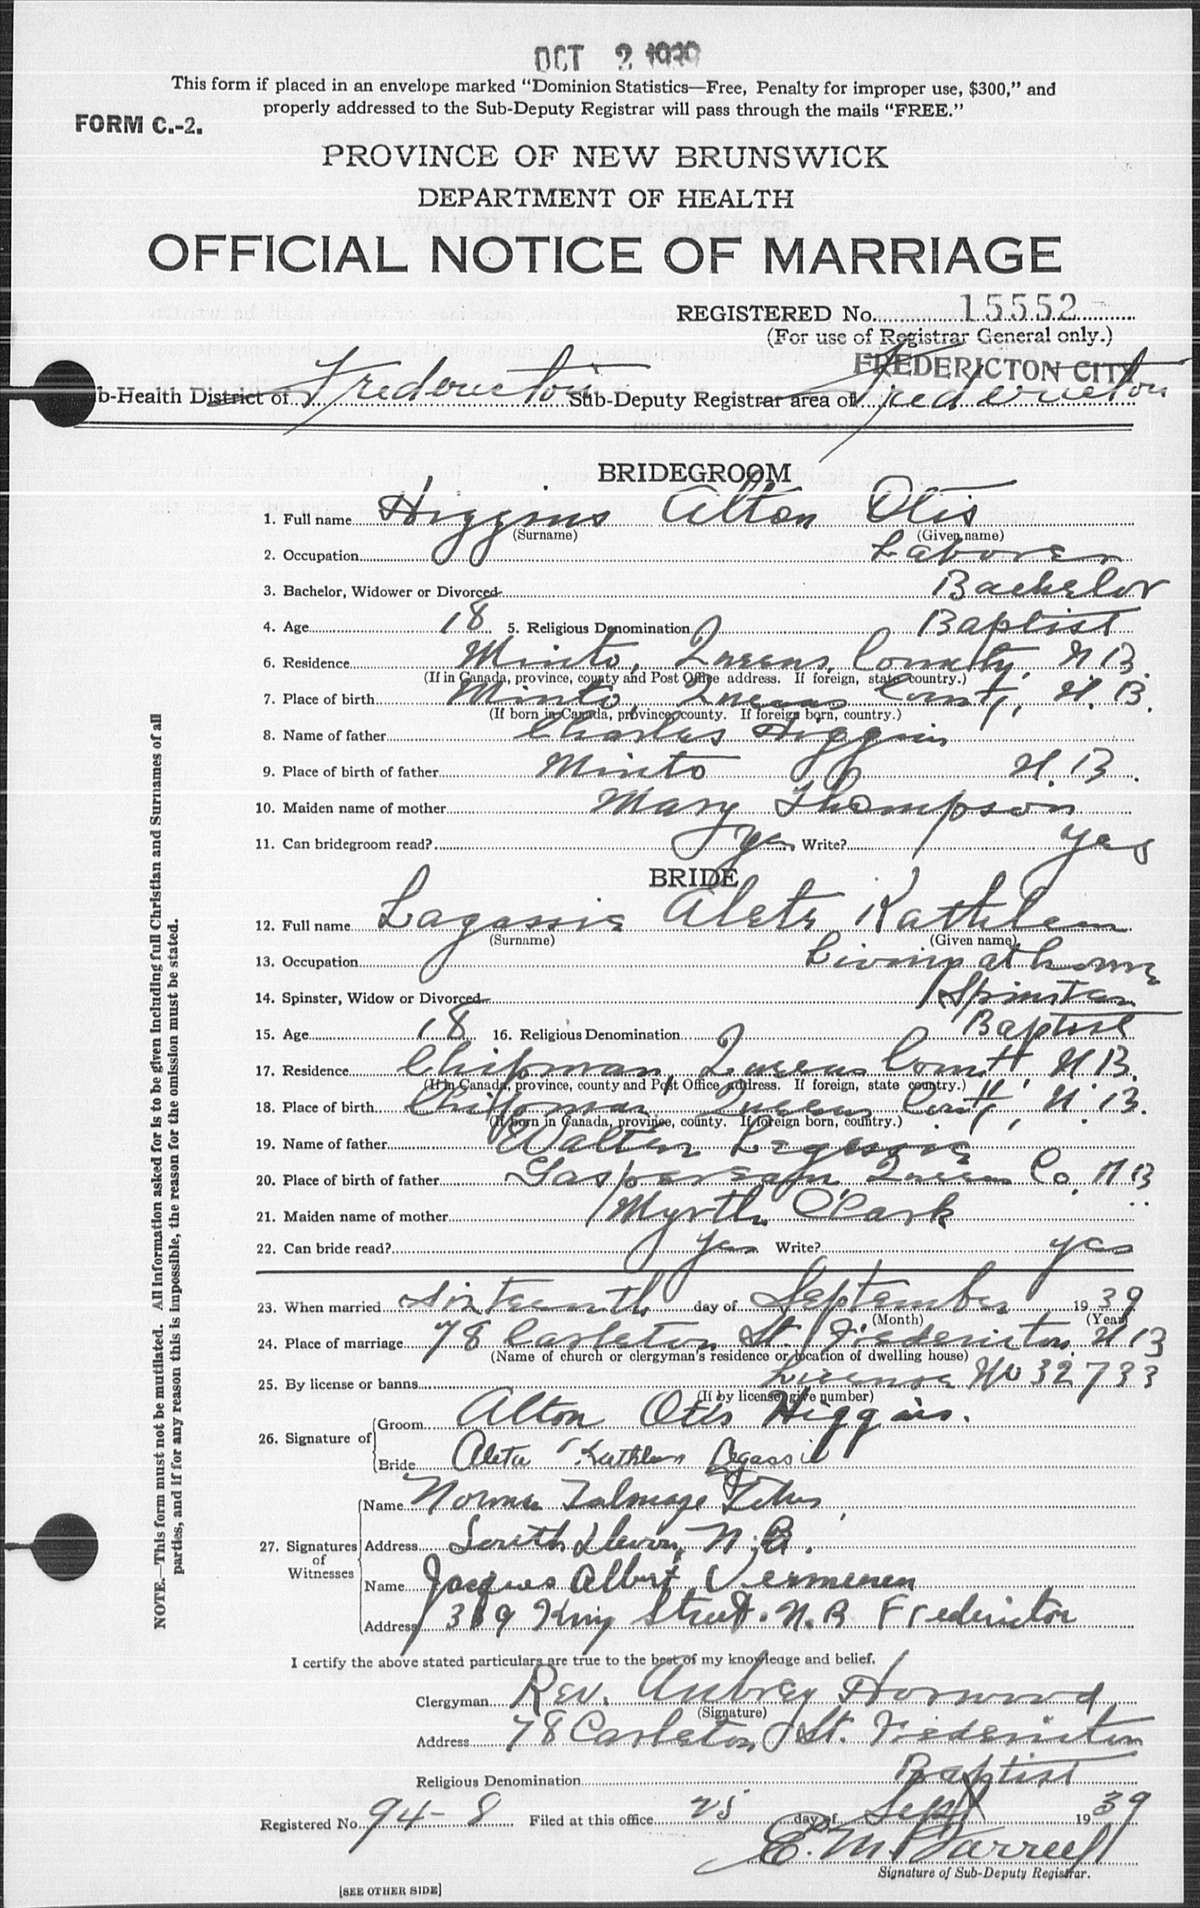 OCT 2 1939
This form if placed in an envelope marked "Dominion Statistics—Free, Penalty for improper use, $300," and
properly addressed to the Sub-Deputy Registrar will pass through the mails "FREE."
FORM C.-2.
PROVINCE OF NEW BRUNSWICK
DEPARTMENT OF HEALTH
OFFICIAL NOTICE OF MARRIAGE
REGISTERED No. 15552
(For use of Registrar General only.)
FREDERICTON CITY
b-Health District of Fredericton Sub-Deputy Registrar area of Fredericton
BRIDEGROOM
1. Full name Higgins Alton Otis
(Surname) (Given name)
2. Occupation Laborer
3. Bachelor, Widower or Divorced Bachelor
4. Age 18 5. Religious Denomination Baptist
6. Residence Minto, Queens County, N.B.
(If in Canada, province, county and Post Office address. If foreign, state country.)
7. Place of birth Minto, Queens County, N.B.
(If born in Canada, province, county. If foreign born, country.)
8. Name of father Charles Higgins
9. Place of birth of father Minto N.B.
10. Maiden name of mother Mary Thompson
11. Can bridegroom read? Yes Write? Yes
BRIDE
12. Full name Lagassie Aleta Kathleen
(Surname) (Given name)
13. Occupation Living at home
14. Spinster, Widow or Divorced Spinster
15. Age 18 16. Religious Denomination Baptist
17. Residence Chipman, Queens County, N.B.
(If in Canada, province, county and Post Office address. If foreign, state country.)
18. Place of birth Chipman, Queens County, N.B.
(If born in Canada, province, county. If foreign born, country.)
19. Name of father Walter Legassie
20. Place of birth of father Gaspereau, Queens Co. N.B.
21. Maiden name of mother Myrtle Clark
22. Can bride read? Yes Write? yes
23. When married Sixteenth day of September 1939
(Month) (Year)
24. Place of marriage 78 Carleton St. Fredericton, N.B
(Name of church or clergyman's residence or location of dwelling house)
25. By license or banns License No 32733
(If by license give number)
26. Signature of Groom Alton Otis Higgins.
Bride Aleta Kathleen Legassie
27. Signatures of Witnesses
Name Norma Talmage
Address South Devon, N.B.
Name Jacques Albert Vermeren
Address 369 King Street. N.B Fredericton
I certify the above stated particulars are true to the best of my knowledge and belief.
Clergyman Rev. Aubrey Horwood
(Signature)
Address 78 Carleton St. Fredericton
Religious Denomination Baptist
Registered No. 94-8 Filed at this office 25 day of Sept 1939
Signature of Sub-Deputy Registrar.
[SEE OTHER SIDE]
NOTE.—This form must not be mutilated. All information asked for is to be given including full Christian and Surnames of all
parties, and if for any reason this is impossible, the reason for the omission must be stated.